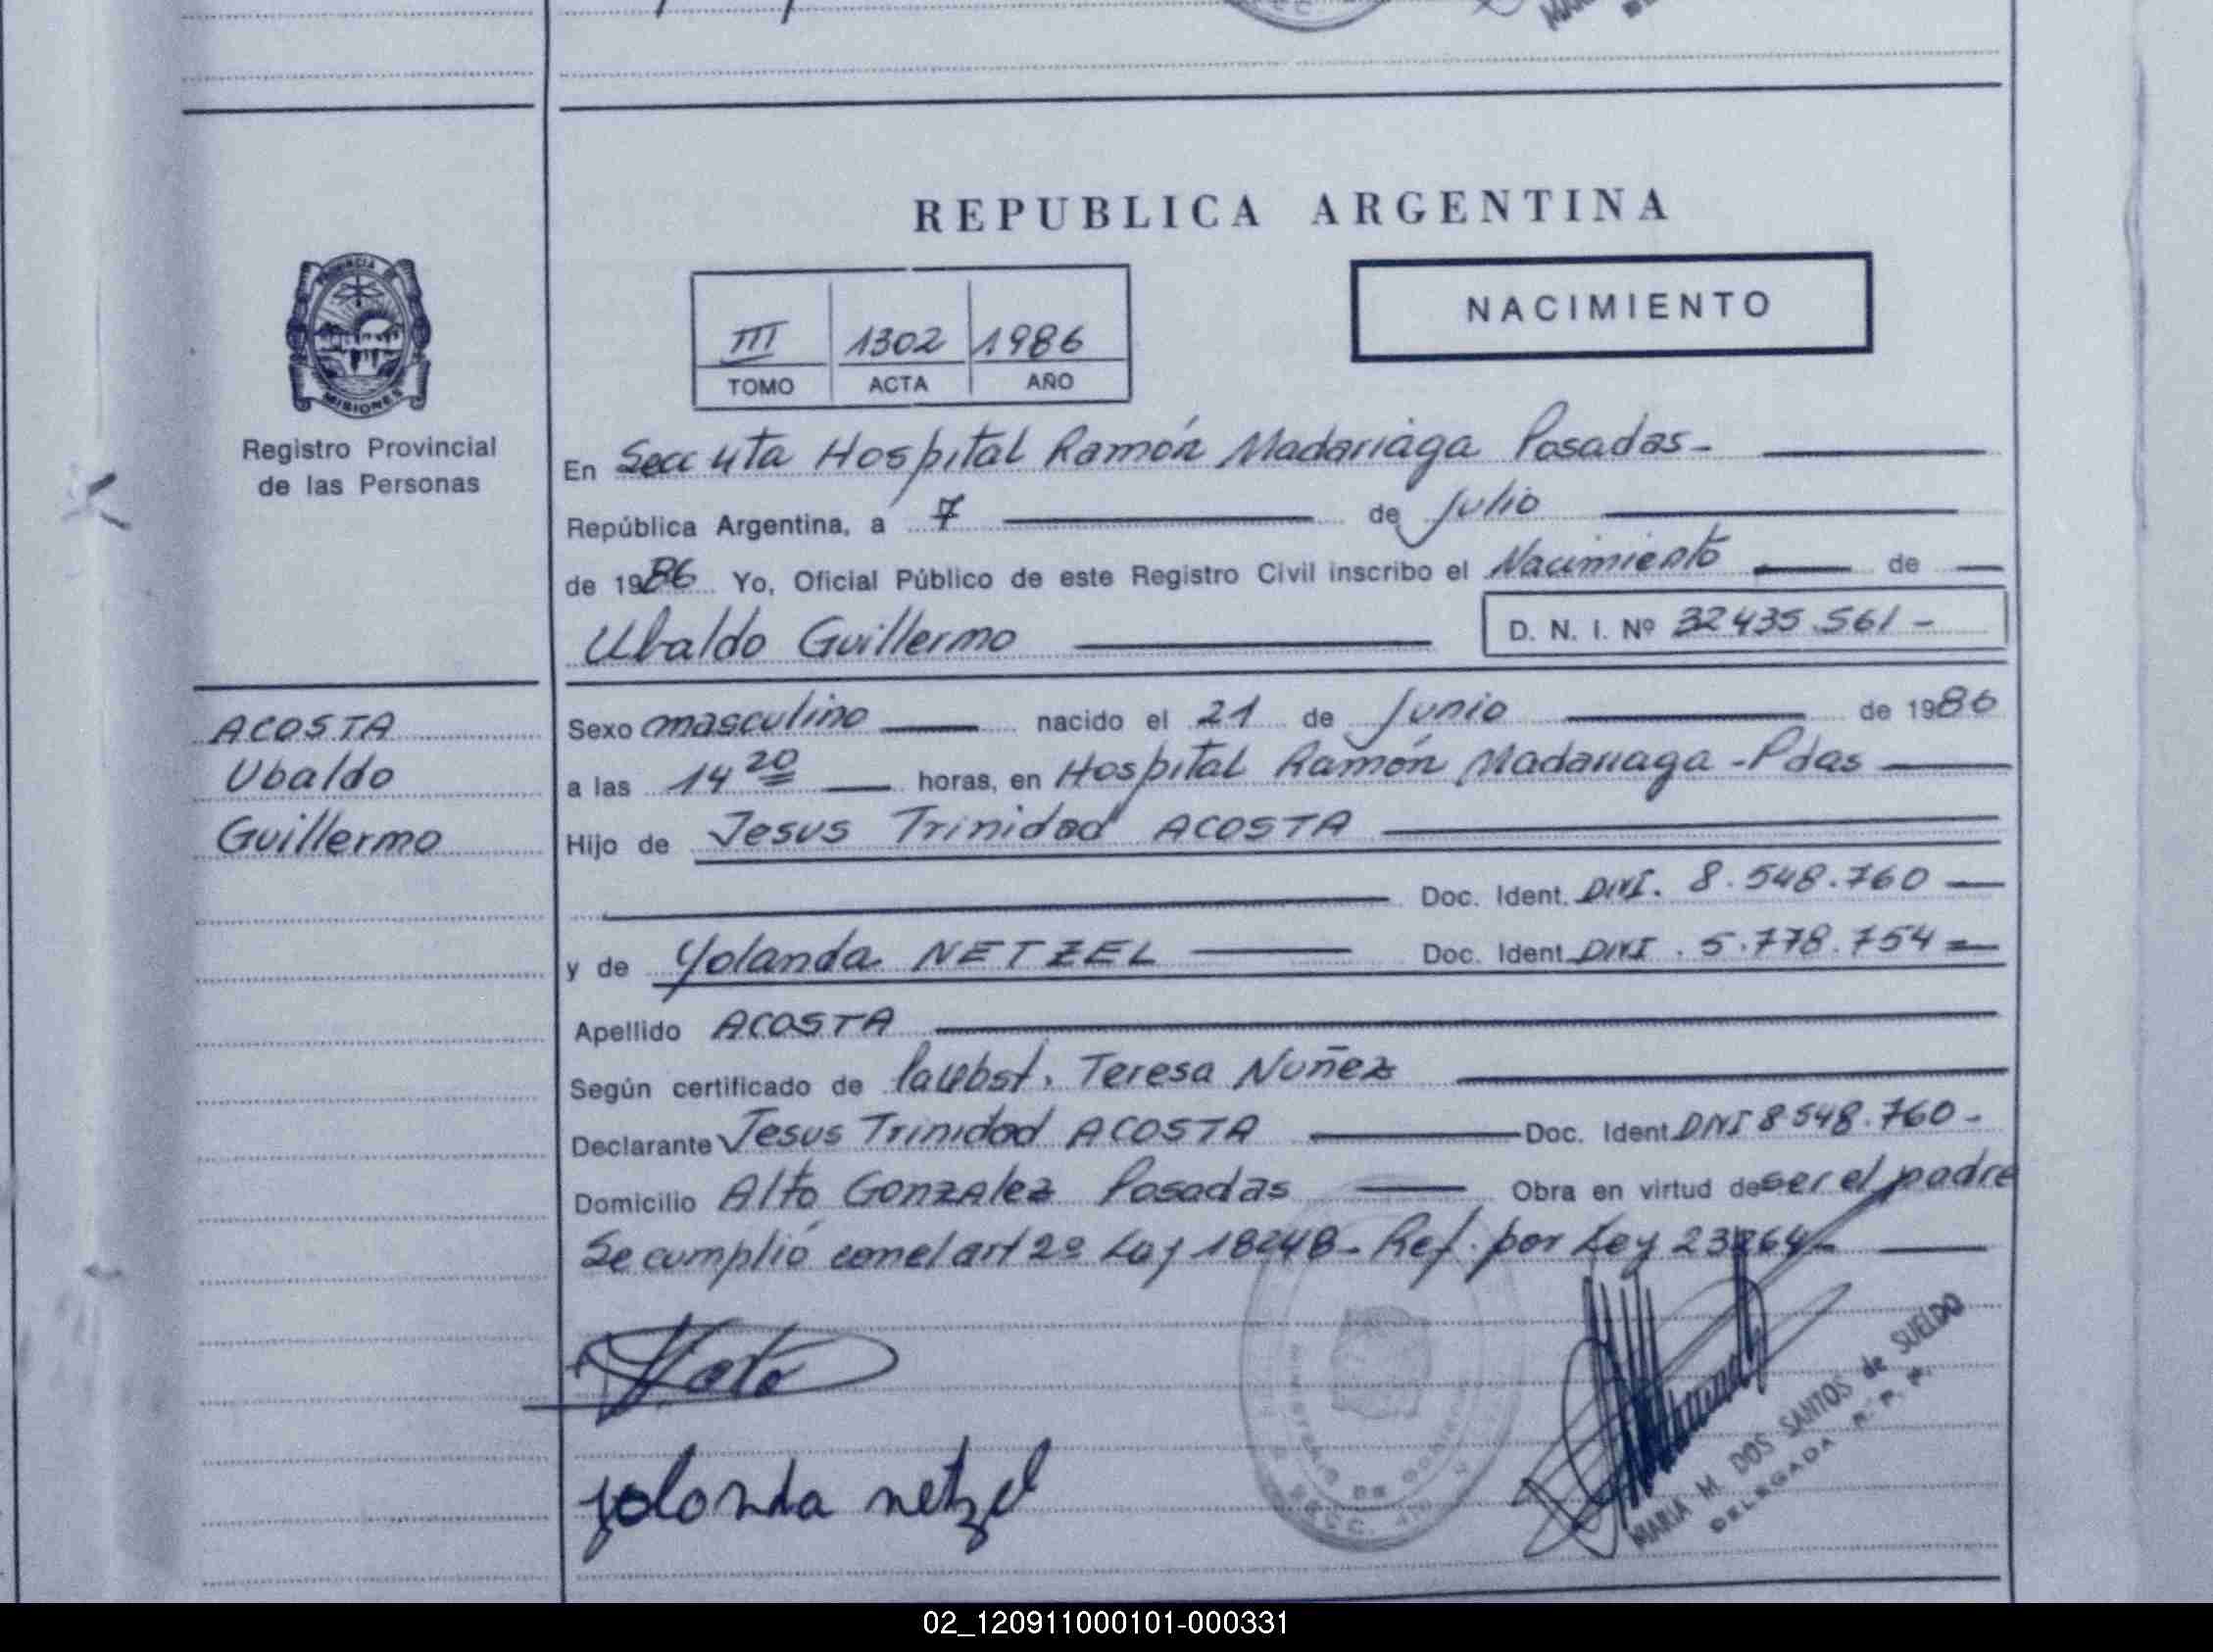 REPUBLICA ARGENTINA
III 1302 1986
TOMO ACTA AÑO
NACIMIENTO
PROVINCIA DE
MISIONES
Registro Provincial
de las Personas
En Secc 4ta Hospital Ramón Madariaga Posadas-
República Argentina, a 7 de Julio
de 1986 Yo, Oficial Público de este Registro Civil inscribo el Nacimiento de
Ubaldo Guillermo D. N. I. Nº 32435.561-
ACOSTA
Ubaldo
Guillermo
Sexo masculino nacido el 21 de Junio de 1986
a las 14 20 horas, en Hospital Ramón Madariaga -Pdas
Hijo de Jesus Trinidad ACOSTA
Doc. Ident. DNI. 8.548.760
y de Yolanda NETZEL Doc. Ident DNI. 5.778.754
Apellido ACOSTA
Según certificado de Teresa Nuñez
Declarante Jesus Trinidad ACOSTA Doc. Ident DNI 8548.760-
Domicilio Alto Gonzalez Posadas Obra en virtud de ser el padre
Se cumplió con el art 2º Ley 18248- Ref. por Ley 23264-
yolanda netzel
MARIA M. DOS SANTOS de SUELDO
DELEGADA R. P. P.
02_120911000101-000331